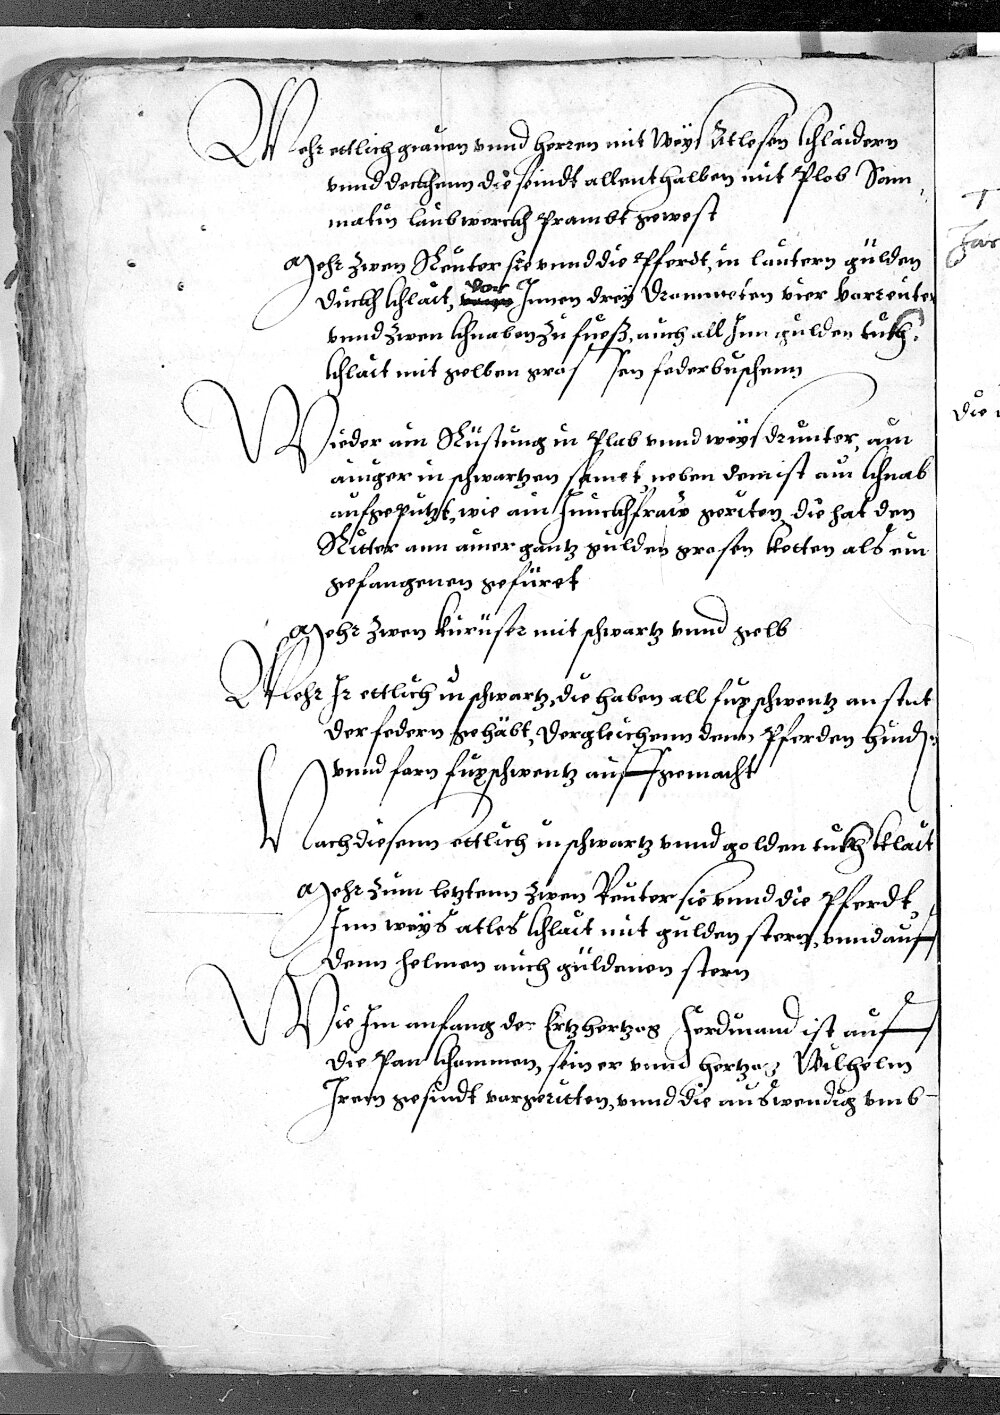 Mehr ettlich grauen vnnd herren mit Weys Atlesen khlaidern
vnnd deckhenn die seindt allenthalben mit Plob Sam
matin laubwerckh Prambt gewest
Mehr zwen Reuter sie vnnd die Pferdt, in lautern gülden
duckh khlait, vor Innen drey Drommeten vier vorreuter
vnnd zwen khnaben zu fuoß, auch all Inn gulden tukh.
khlait mit gelben gros sen federbuschenn
Wieder ain Rüstung in Plab vnnd weys drunter, ain
ainiger in schwartzen samet, neben dem ist ain khnab
aufgeputzt, wie ain Junckhfraw geriten, die hat den
Ritter ann ainer gantz gulden grosen ketten als ein
gefangenen gefüret
Mehr zwen kürüser mit schwartz vnnd gelb
Mehr Ir ettlich in schwartz, die haben all fuxschwentz an stat
der federn gehäbt, dergleichenn denn Pferden hinden
vnnd forn fuxschwentz auff gemacht
Nach diesenn ettlich in schwartz vnnd golden tukh klait
Mehr zum letztenn zwen Reuter sie vnnd die Pferdt,
Inn weys atles khlait mit gulden stern, vnnd auff
denn helmen auch güldenen stern
Wie Im anfang der Ertzhertzog Ferdinand ist auff
die Pan khommen, sein er vnnd hertzog Wilhelm
Irem gesindt vorgeritten, vnnd die auswendig vmb
die